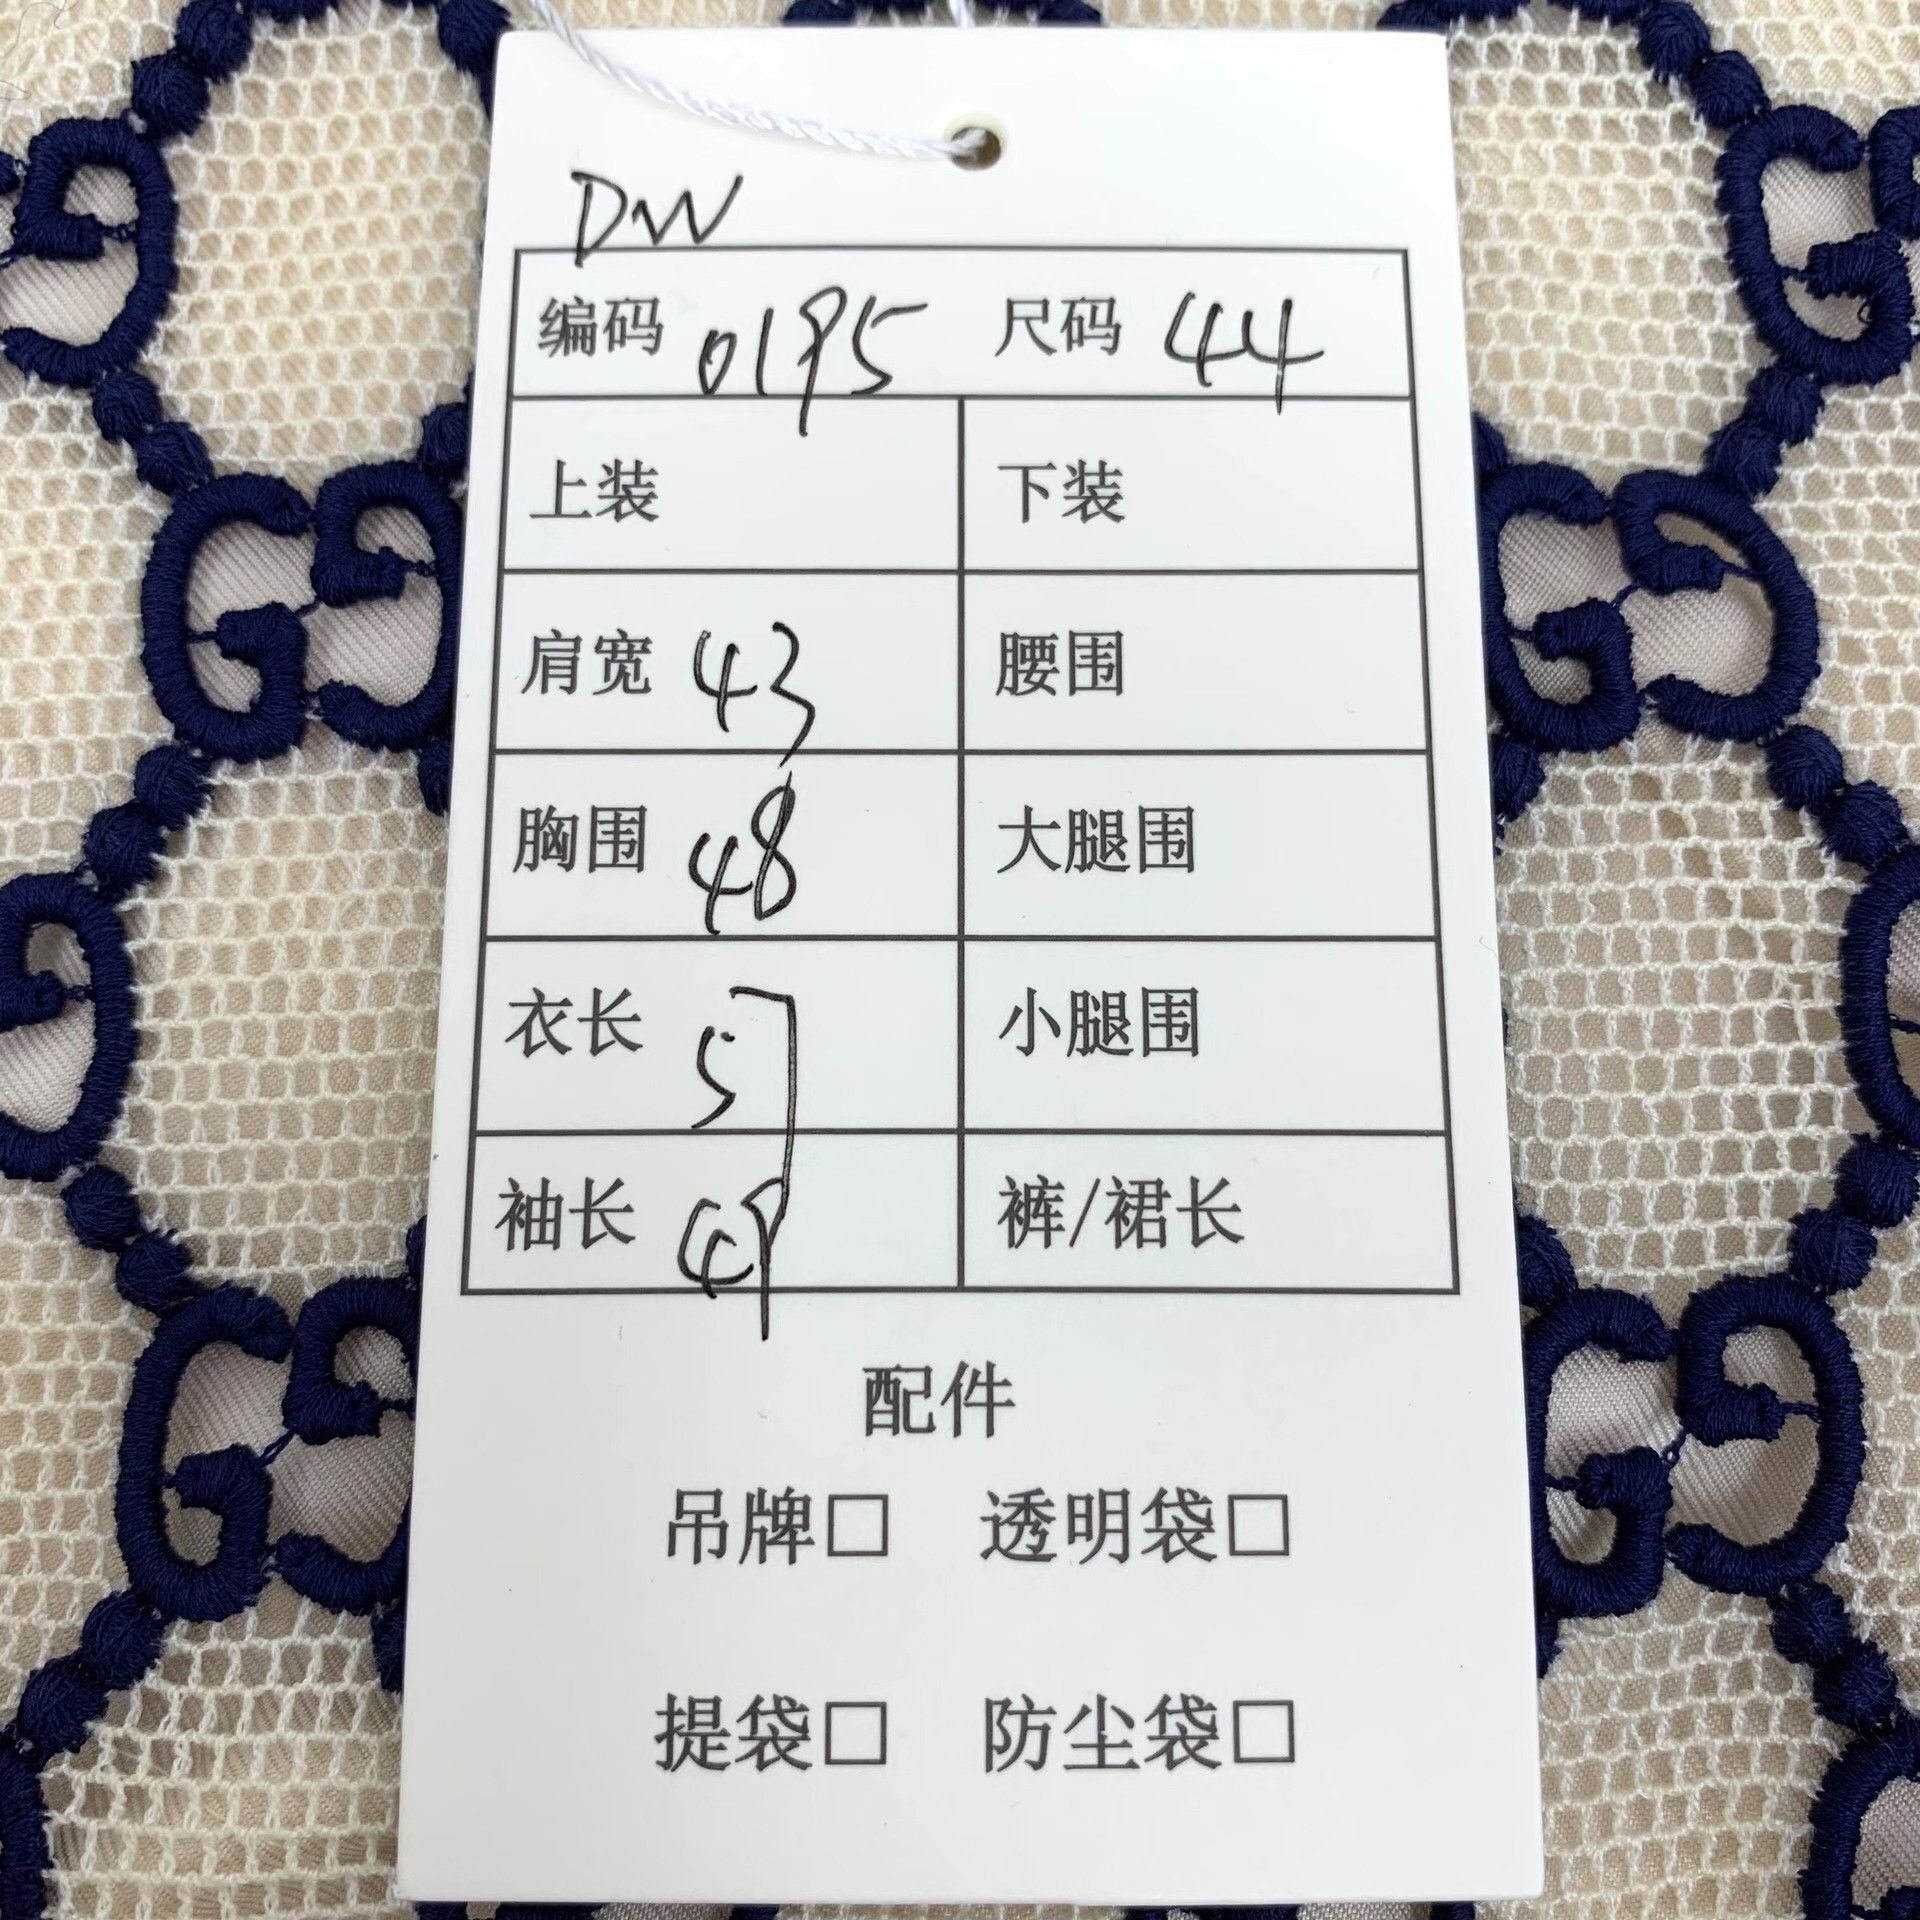 DW
编码 0195 尺码 44
上装 下装
肩宽 43 腰围
胸围 48 大腿围
衣长 57 小腿围
袖长 49 裤/裙长
配件
吊牌□ 透明袋□
提袋□ 防尘袋□